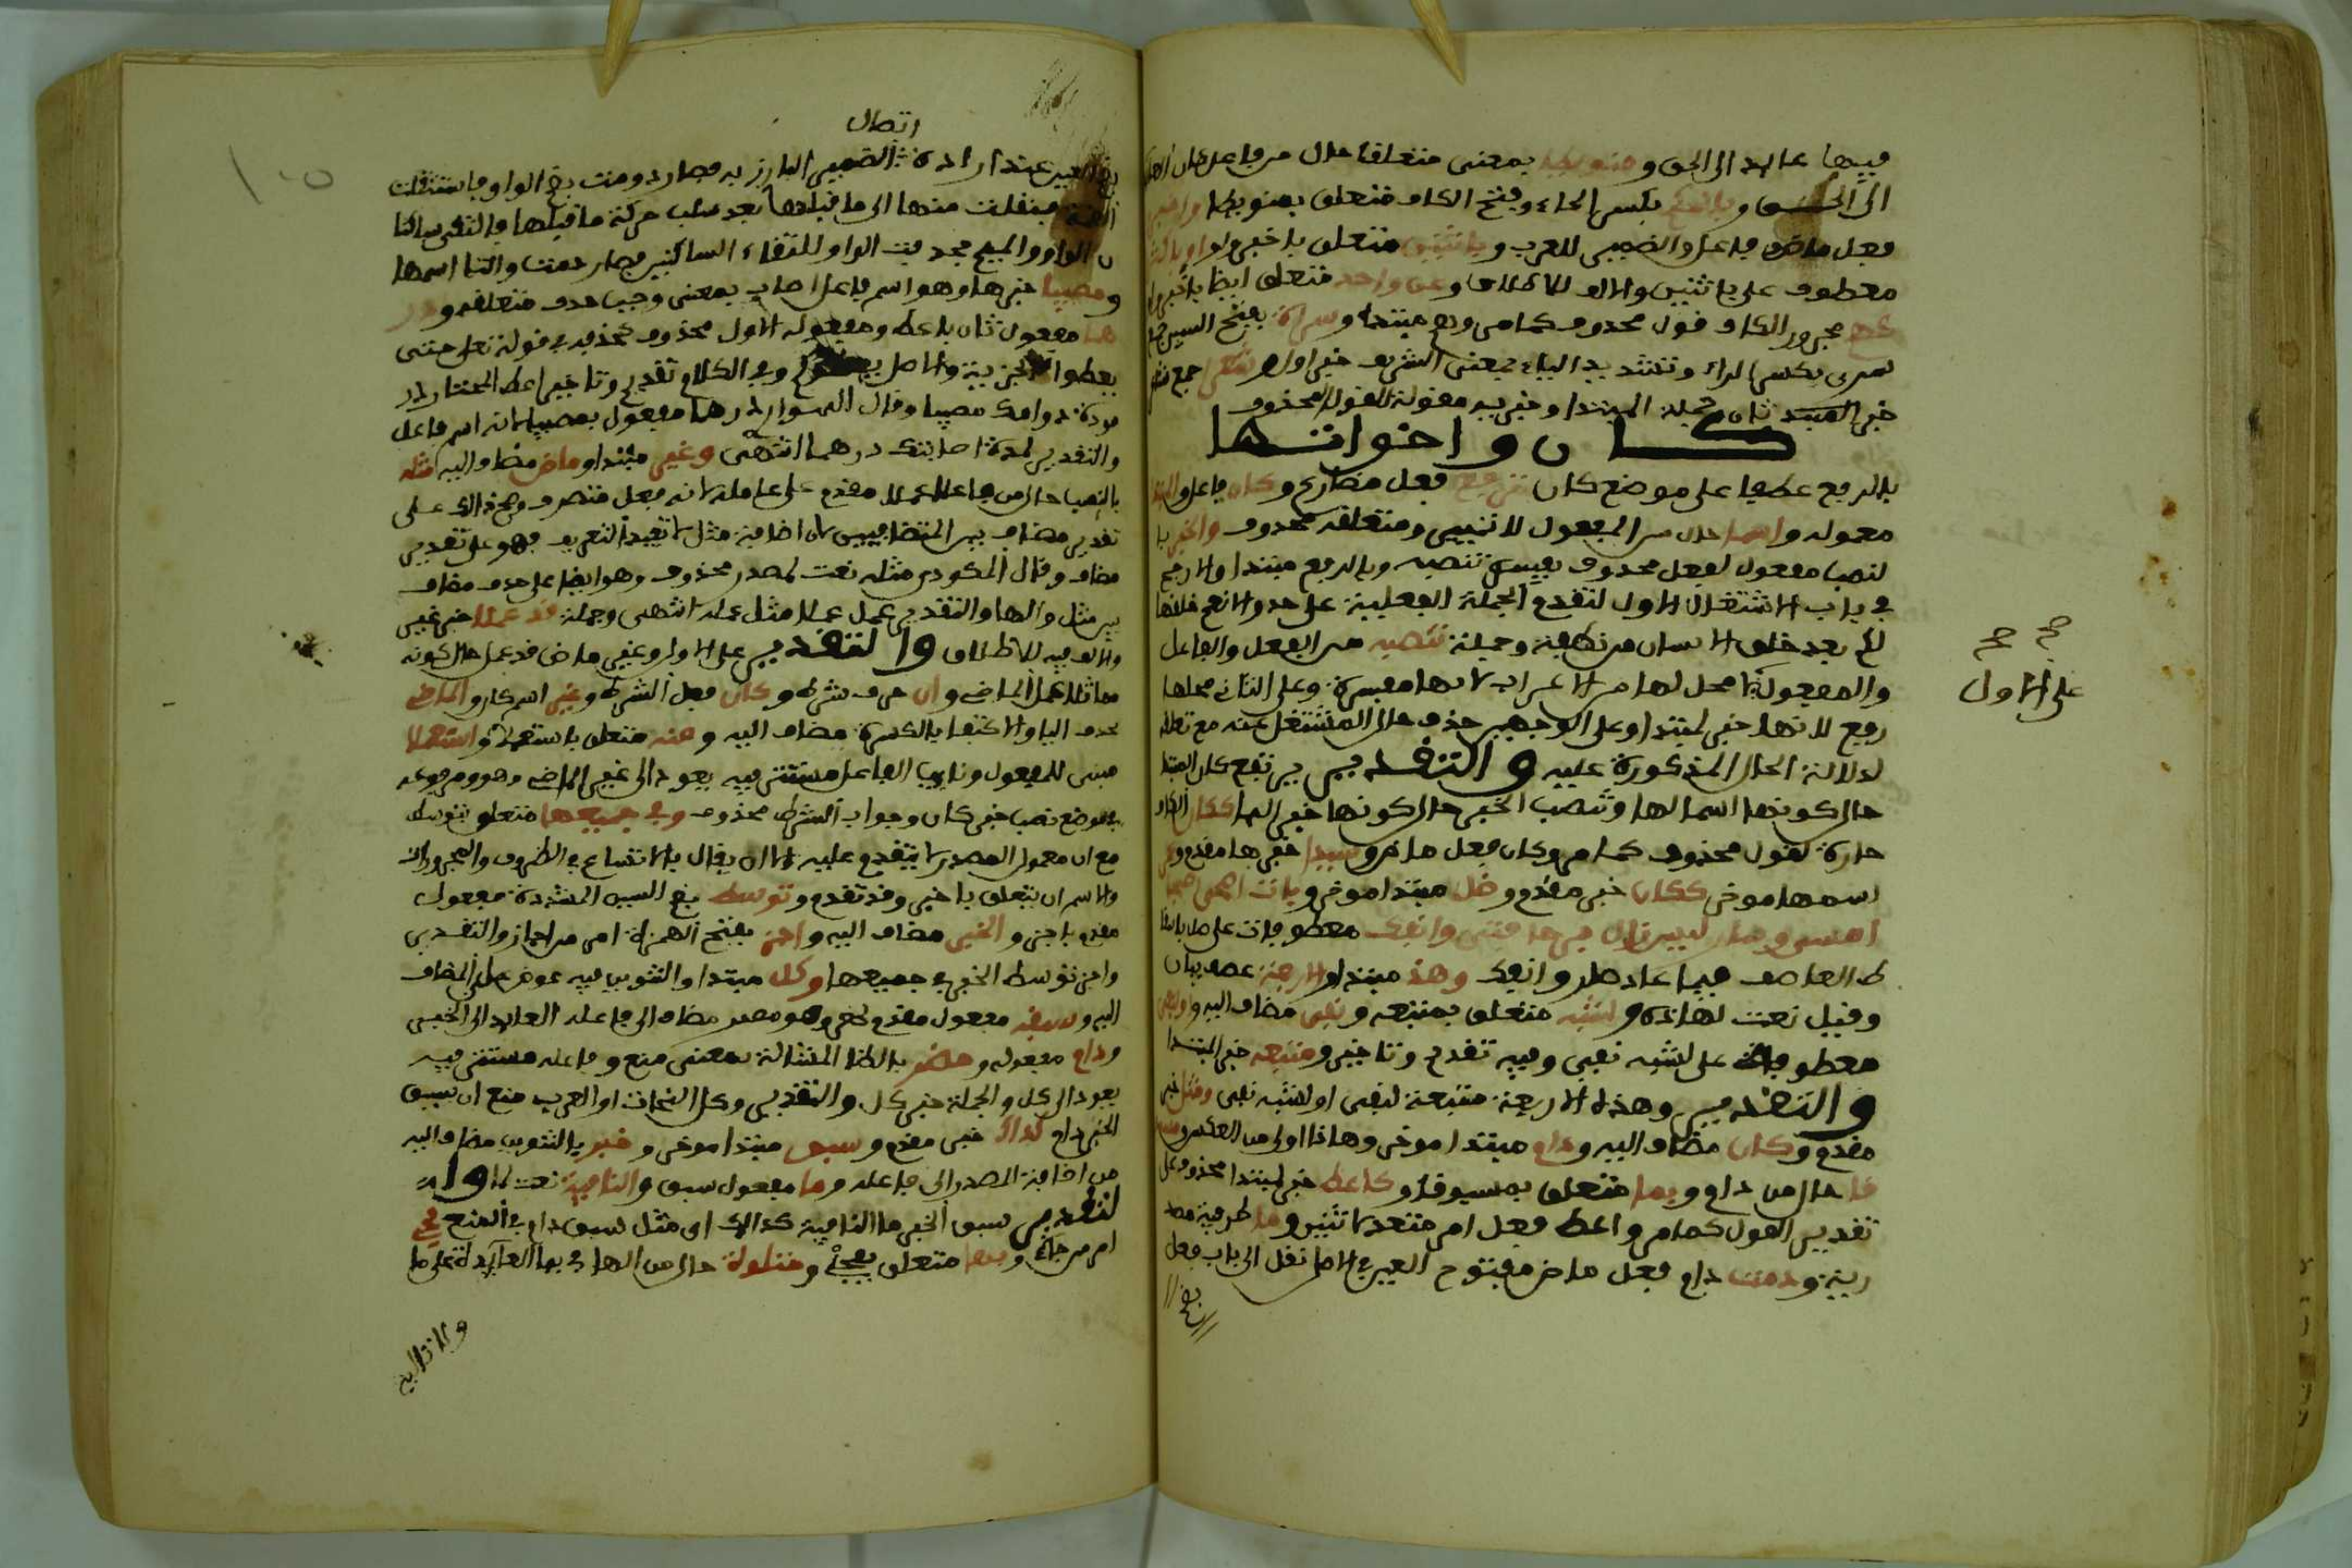 فيها عايد الى الحق و منويا بمعنى متعلقا حال من فاعل كان العايد
الى الحق و بالحكم بكسر الحاء وفتح الكاف متعلق بمنويا و اخبر
فعل ماض فاعله الضمير للعرب و باثنين متعلق باخبروا و او باكثرا
معطوف على باثنين والالف للاطلاق و عن واحد متعلق ايضا باخبروا
كهم مجرور الكاف قول محذوف كما مر وهم مبتدا و سراة بفتح السين جمع
سرى بكسر الراء وتشديد الياء بمعنى الشريف خبر اول و شعرا جمع شاعر
خبر المبتدا ثان وجملة المبتدا وخبريه مقولة للقول المحذوف
كان واخواتها
بالرفع عطفا على موضع كان ترفع فعل مضارع و كان فاعل و المبتدا
معموله و اسما حال من المفعول لا تمييز ومتعلقه محذوف و الخبر با
لنصب مفعول لفعل محذوف يفسره تنصبه وبالرفع مبتدا والارجح
في باب الاشتغال الاول لتقدم الجملة الفعلية على حد والانعام خلقها
لكم بعد خلق الانسان من نطفة وجملة تنصبه من الفعل والفاعل
والمفعول لا محل لها من الاعراب لانها مفسرة وعلى الثاني محلها
رفع لانها خبر لمبتدا وعلى الوجهين حذف حال المشتغل عنه مع تعلقه
لدلالة الحال المذكورة عليه والتقدير يرتفع كان المبتدا
حال كونه اسما لها وتنصب الخبر حال كونها خبرا لها ككان الكاف
جارة لقول محذوف كما مر وكان فعل ماض و سيدا خبرها مقدم و عمر
اسمها موخر ككان خبر مقدم و ظل مبتدا موخر و بات اضحى اصبحا
امسى وصار ليس زال برحا فتئ وانفك معطوفات على ظل باسقا
ط العاطف فيما عدا صار وانفك وهذي مبتدا و الاربعة عطف بيان
وقيل نعت لهاذه و لشبه متعلق بمتبعه و نفي مضاف اليه و او لنفي
معطوف على لشبه نفي وفيه تقديم وتاخير و متبعه خبر المبتدا
والتقدير وهذه الاربعة متبعة لنفي او لشبه نفي و مثل خبر
مقدم و كان مضاف اليه و دام مبتدا موخر وهاذا اولى من العكس و مسبو
قا حال من دام و بما متعلق بمسبوقا و كاعط خبر لمبتدا محذوف على
تقدير القول كما مر واعط فعل امر متعد لاثنين و ما ظرفية مصد
رية و دمت دام فعل ماض مفتوح العين في الاصل نقل الى باب فعل
بضم
صح صح
على الاول
اتصال
بضم العين عند ارادة الضمير البارز به فصار دومت بضم الواو فاستثقلت
الضمة فنقلت منها الى ما قبلها بعد سلب حركة ما قبلها فالتقى ساكنا
ن الواو والميم فحذفت الواو لالتقاء الساكنين فصار دمت والتا اسمها
و مصيبا خبرها وهو اسم فاعل اصاب بمعنى وجب حذف متعلقه و در
هما مفعول ثان باعط ومفعوله الاول محذوف كحذفه في قوله تعلى حتى
يعطوا الجزية والاصل يعطوكم وفي الكلام تقديم وتاخير اعط المحتاج در
هما مدة دوامك مصيبا وقال الهواري درهما مفعول بمصيبا لانه اسم فاعل
والتقدير لمدة اصابتك درهما انتهى و غير مبتدا و ماض مضاف اليه مثله
بالنصب حال من فاعل عملا مقدم على عامله لانه فعل متصرف وهو كذالك على
تقدير مضاف بين المتضايفين لان اضافة مثل لا تفيد التعريف فهو على تقدير
مضاف وقال المكودي مثله نعت لمصدر محذوف وهو ايضا على حذف مضاف
بين مثل والها والتقدير عمل عملا مثل عمله انتهى وجملة قد عملا خبر غير
والالف فيه للاطلاق والتقدير على الاول وغير ماض قد عمل حال كونه
مماثلا عمل الماض و ان حرف شرط و كان فعل الشرط و غير اسم كان و الماض
بحذف اليا والاكتفا بالكسرة مضاف اليه و منه متعلق باستعملا و استعملا
مبنى للمفعول ونايب الفاعل مستتر فيه يعود الى غير الماض وهو ومرفوعه
في موضع نصب خبر كان وجواب الشرط محذوف و في جميعها متعلق بتوسط
مع ان معمول المصدر لا يتقدم عليه الا ان يقال بالاتساع في الظروف والمجرورات
والاسد ان يتعلق باجز وقد تقدم و توسط بضم السين المشددة مفعول
مقدم باجز و الخبر مضاف اليه و اجز بفتح الهمزة امر من اجاز والتقدير
واجز توسط الخبر في جميعها و كل مبتدا والتنوين فيه عوض عن المضاف
اليه و سبقه مفعول مقدم لحظر وهو مصدر مضاف الى فاعله العايد الى الخبر
و دام مفعوله و حظر بالظا المشالة بمعنى منع وفاعله مستتر فيه
يعود الى كل والجملة خبر كل والتقدير وكل النحات او العرب منع ان يسبق
الخبر دام كذاك خبر مقدم و سبق مبتدا موخر و خبر بالتنوين مضاف اليه
من اضافة المصدر الى فاعله و ما مفعول سبق و النافية نعت لما وا
لتقدير سبق الخبر ما النافية كذالك اي مثل سبق دام في المنع فجئ
امر من جاء و بها متعلق بجئ و متلوة حال من الهاء في بها العايدة على ما